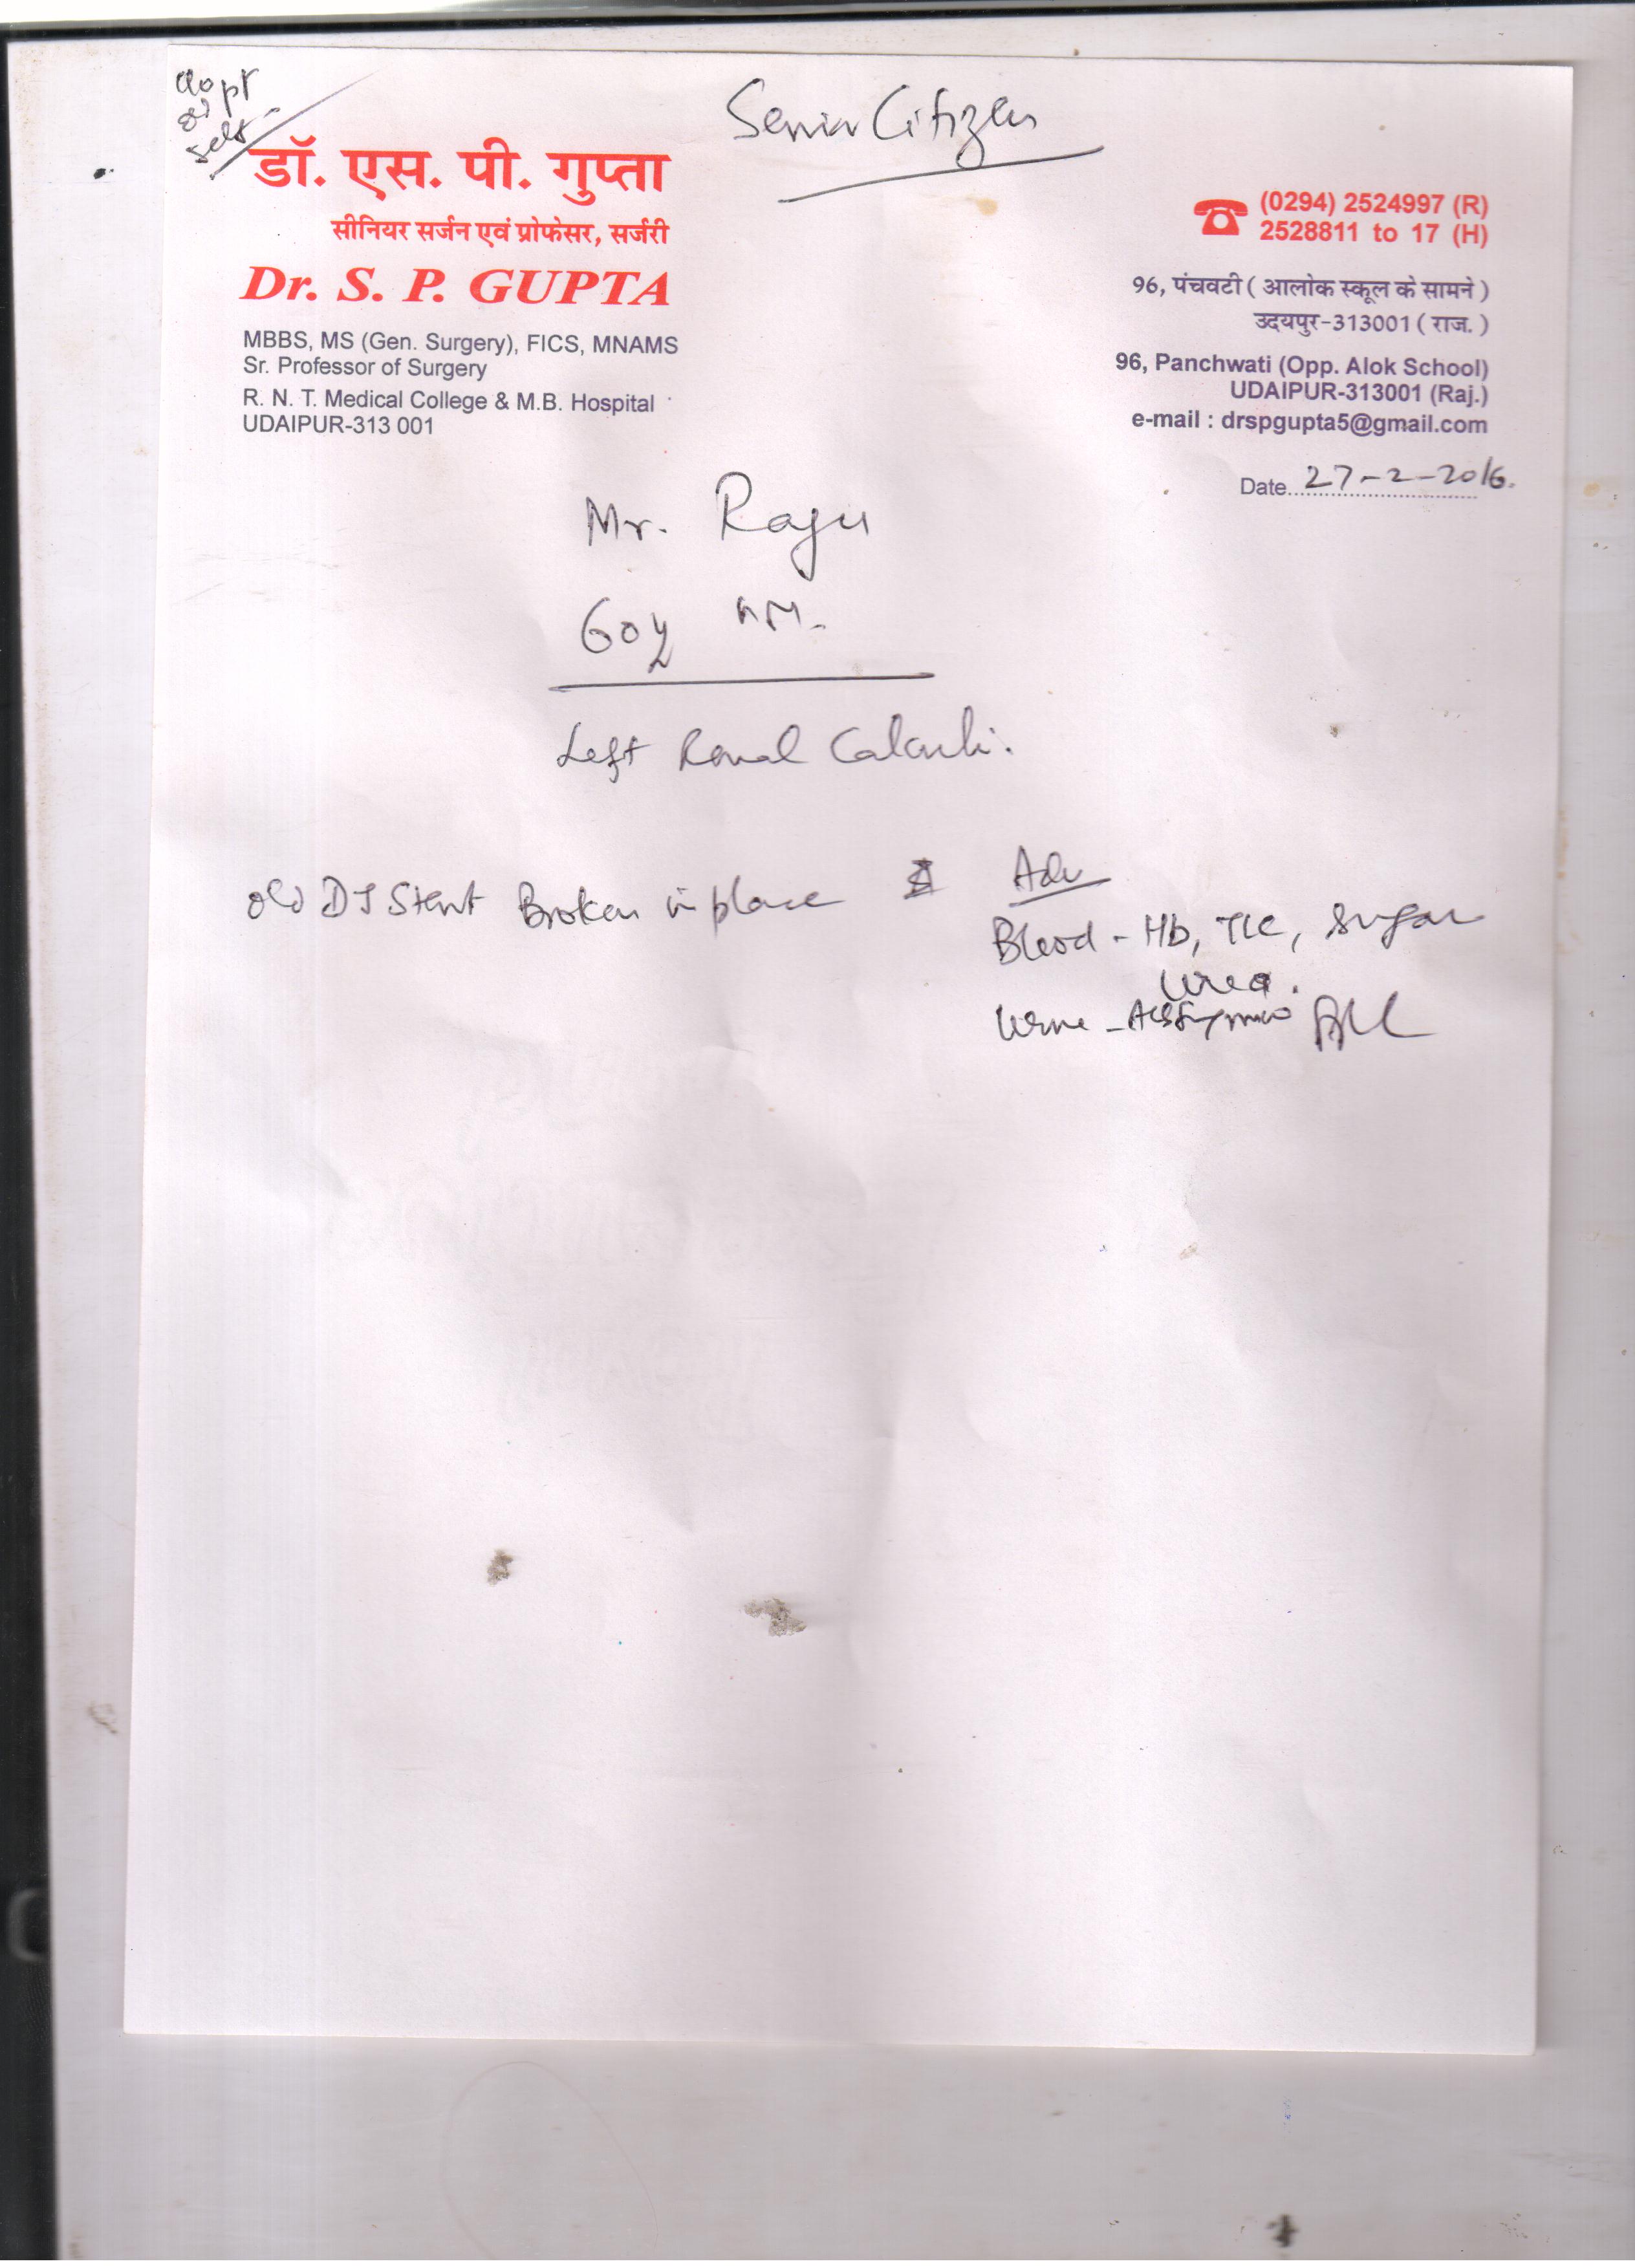 Senior Citizen
old pt
self
डॉ. एस. पी. गुप्ता
सीनियर सर्जन एवं प्रोफेसर, सर्जरी
Dr. S. P. GUPTA
MBBS, MS (Gen. Surgery), FICS, MNAMS
Sr. Professor of Surgery
R. N. T. Medical College & M.B. Hospital
UDAIPUR-313 001
(0294) 2524997 (R)
2528811 to 17 (H)
96, पंचवटी ( आलोक स्कूल के सामने )
उदयपुर-313001 ( राज. )
96, Panchwati (Opp. Alok School)
UDAIPUR-313001 (Raj.)
e-mail : drspgupta5@gmail.com
Date 27-2-2016.
Mr. Raju
60y M.
Left Renal Calculi.
old DJ Stent Broken in place
Adv
Blood - Hb, TLC, Sugar
Urea.
Urine -